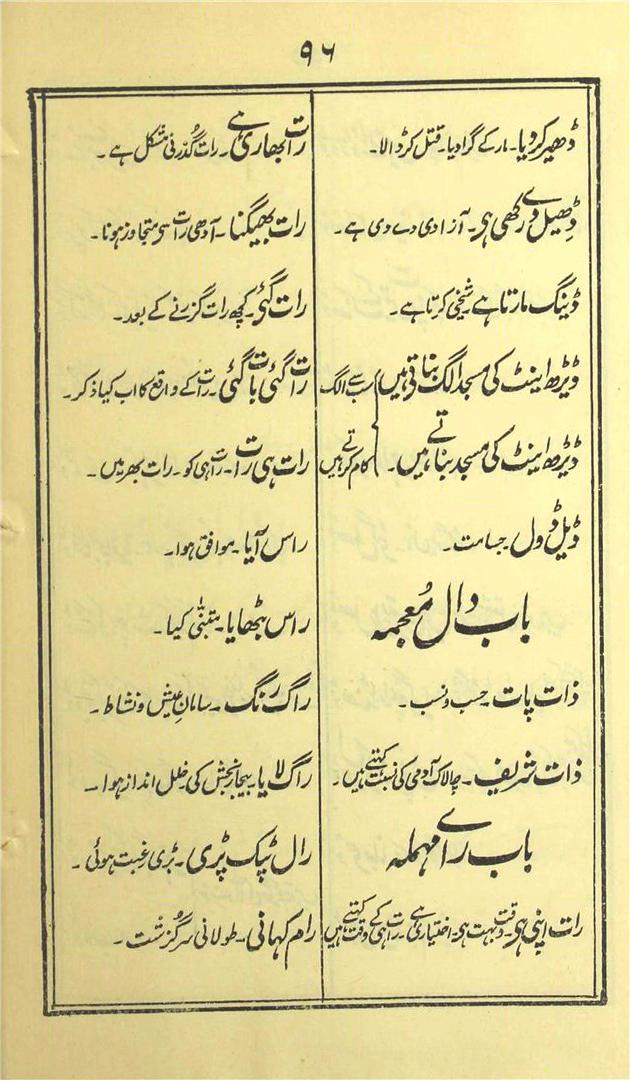 ۹۶
ڈھیر کردیا۔ مار کے گرا دیا۔ قتل کر ڈالا۔
ڈھیل دے رکھی ہی۔ آزادی دے دی ہے۔
ڈینگ مارتا ہے۔ شیخی کرتا ہے۔
ڈیڑھ اینٹ کی مسجد الگ بناتی ہیں } سب سے الگ
ڈیڑھ اینٹ کی مسجد بناتے ہیں۔ } کام کرتے ہیں
ڈیل ڈول۔ جسامت۔
باب ذال معجمہ
ذات پات۔ حسب و نسب۔
ذات شریف۔ چالاک آدمی کی نسبت کہتے ہیں۔
باب رائے مہملہ
رات اپنی ہی۔ وقت بہت ہی۔ اختیاری ہے۔ رات ہی کے وقت کہتے ہیں
رات بھاری ہے۔ رات گُذرنی مشکل ہے۔
رات بھیگنا۔ آدھی رات سی متجاوز ہونا۔
رات گئی۔ کچھ رات گزرنے کے بعد۔
رات گئی بات گئی۔ رات کے واقع کا اب کیا ذکر۔
رات ہی رات۔ رات ہی کو۔ رات بھر میں۔
راس آیا۔ موافق ہوا۔
راس بٹھایا۔ متبنّٰی کیا۔
راگ رنگ۔ سامانِ عیش و نشاط۔
راگ لایا۔ بیجا رنجش کی۔ خلل انداز ہوا۔
رال ٹپک پڑی۔ بڑی رغبت ہوئی۔
رام کہانی۔ طولانی سرگزشت۔